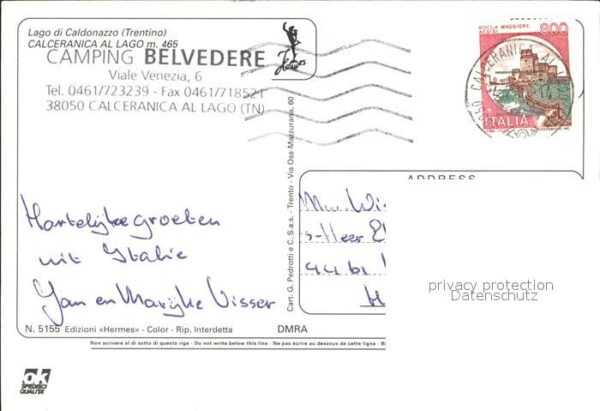 Lago di Caldonazzo (Trentino)
CALCERANICA AL LAGO m. 465
CAMPING BELVEDERE
Viale Venezia, 6
Tel. 0461/723239 - Fax 0461/718521
38050 CALCERANICA AL LAGO (TN)
ROCCA MAGGIORE
ASSISI
800
ITALIA
CALCERANICA AL
ADDRESS
Hartelijke groeten
uit Italie
Jan en Marijke Visser
s-Heer
privacy protection
Datenschutz
Cart. G. Pedrotti e C. S.a.s. - Trento - Via Oss-Mazzurana, 60
N. 5155 Edizioni «Hermes» - Color - Rip. Interdetta
DMRA
Non scrivere al di sotto di questa riga - Do not write below this line - Ne pas écrire au dessous de cette ligne
OK
SPEDISCI
QUALITÀ